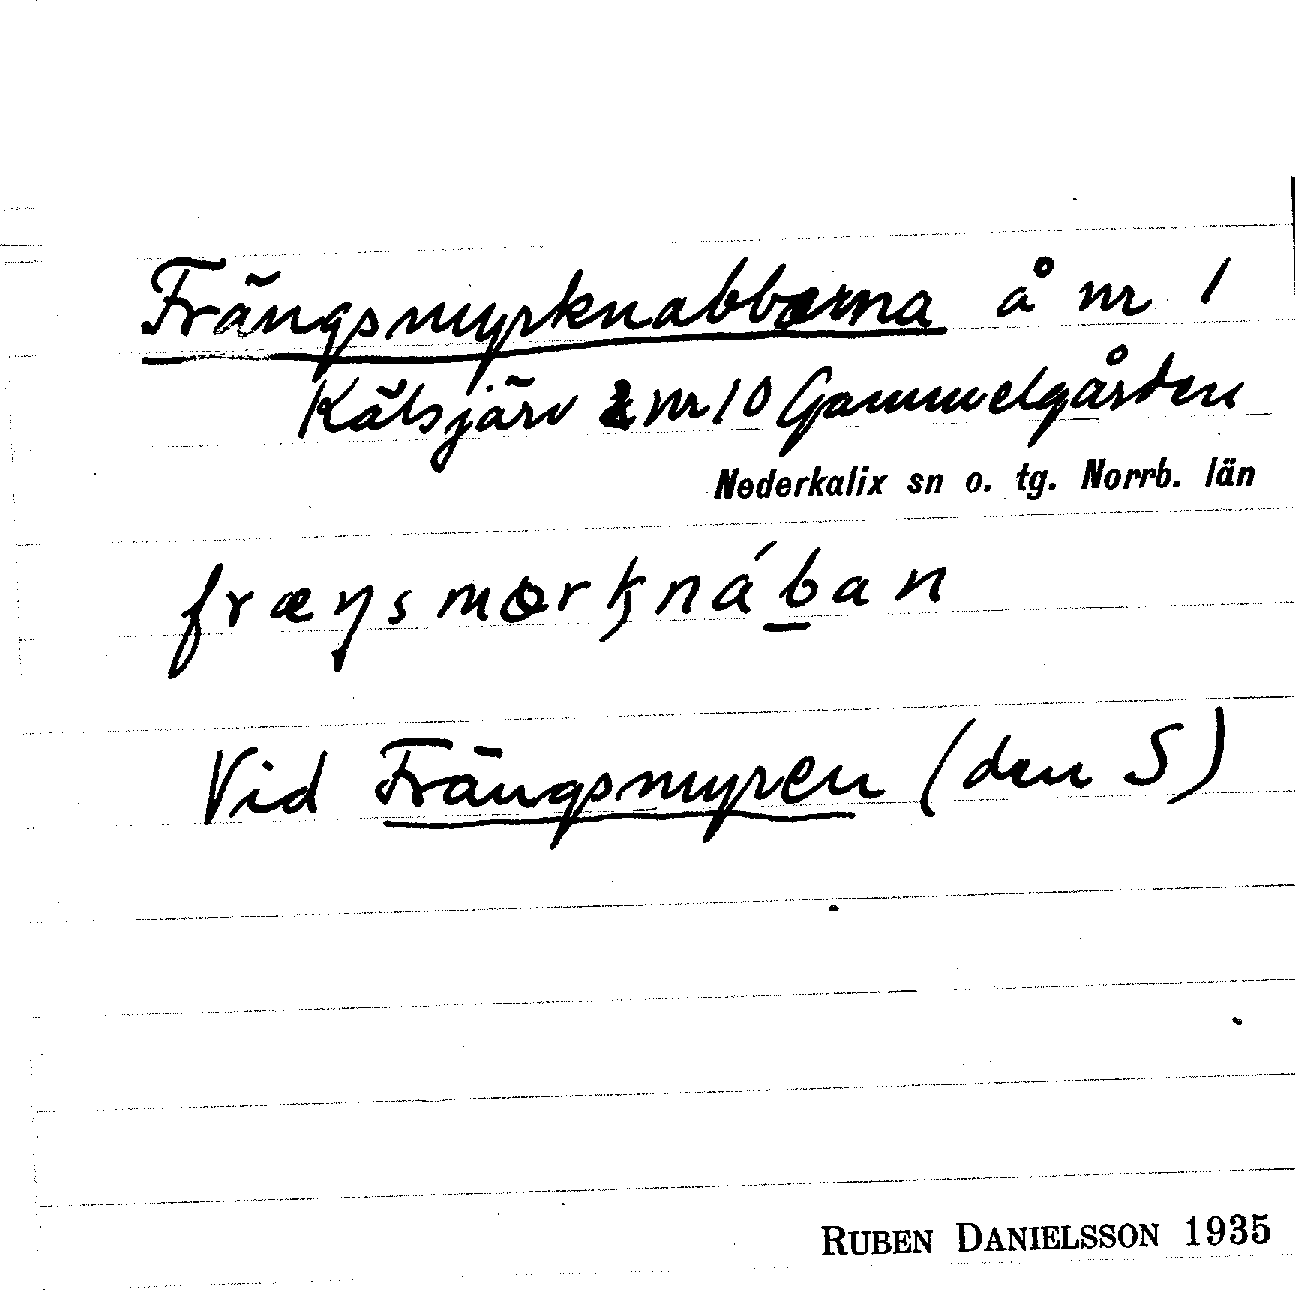 Frängsmyrknabbarna å nr 1
Kälsjärv & nr 10 Gammelgården
Nederkalix sn o. tg. Norrb. län
fræŋsmørknában
Vid Frängsmyren (den S)
RUBEN DANIELSSON 1935